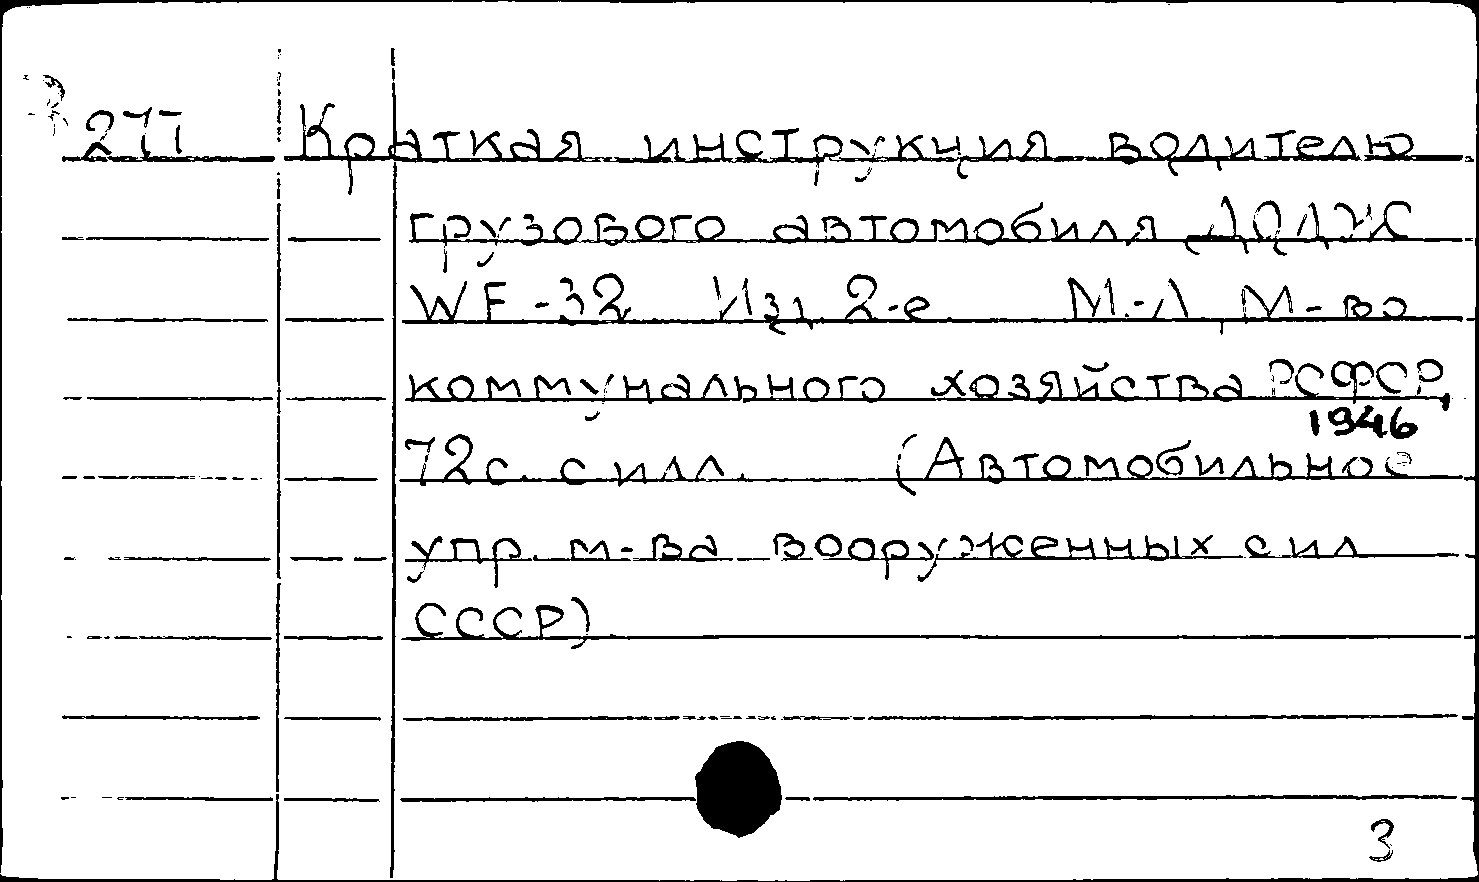 277 Краткая инструкция водителю
грузового автомобиля ДОДЖ
WF-32 Изд. 2-е М.-Л, М-во
коммунального хозяйства РСФСР,
1946
72с. с илл. (Автомобильное
упр. м-ва вооруженных сил
СССР)
3